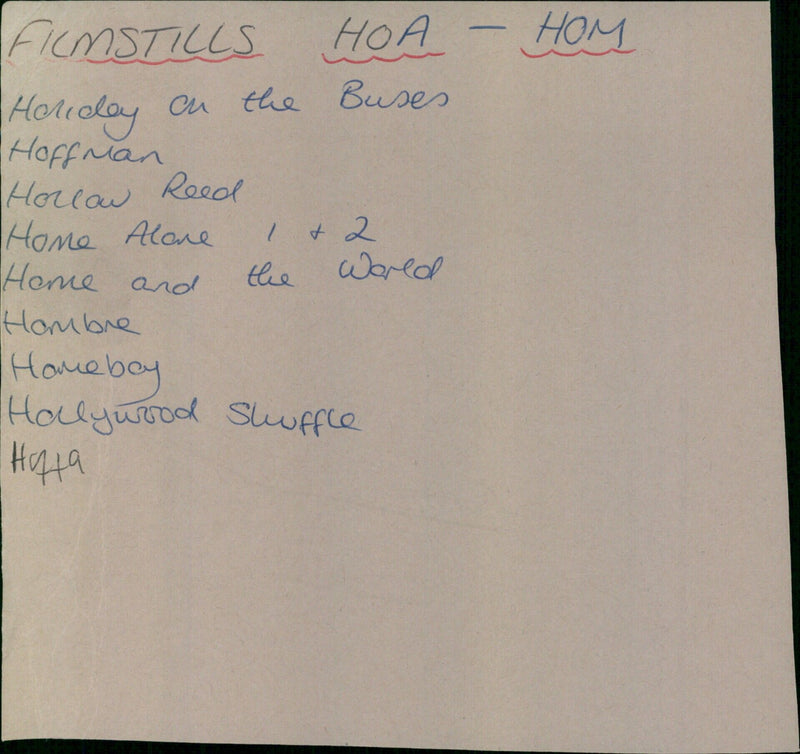 FILMSTILLS HOA - HOM
Holiday on the Buses
Hoffman
Hollow Reed
Home Alone 1 + 2
Home and the World
Hombre
Homeboy
Hollywood Shuffle
Hoffa